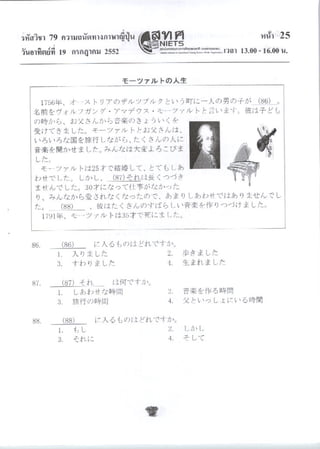 รหัสวิชา 79 ความถนัดทางภาษาญี่ปุ่น
วันอาทิตย์ที่ 19 กรกฎาคม 2552
สทศ
NIETS
หน้า 25
เวลา 13.00 - 16.00 น.
モーツァルトの人生
1756年、オーストリアのザルツブルクという町に一人の男の子が (86) 。
名前をヴォルフガング・アマデウス・モーツァルトと言います。彼は子ども
の時から、お父さんから音楽のきょういくを
受けてきました。モーツァルトとお父さんは、
いろいろな国を旅行しながら、たくさんの人に
音楽を聞かせました。みんなは大変よろこびま
した。
モーツァルトは25才で結婚して、とてもしあ
わせでした。しかし、 (87)それは長くつづき
ませんでした。30才になって仕事がなかった
り、みんなから愛されなくなったので、あまりしあわせではありませんでし
た。 (88) 、彼はたくさんのすばらしい音楽を作りつづけました。
1791年、モーツァルトは35才で死にました。
86. (86) に入るものはどれですか。
1. 入りました 2. 歩きました
3. すわりました 4. 生まれました
87. (87) それ は何ですか。
1. しあわせな時間 2. 音楽を作る時間
3. 旅行の時間 4. 父といっしょにいる時間
88. (88) に入るものはどれですか。
1. もし 2. しかし
3. それに 4. そして